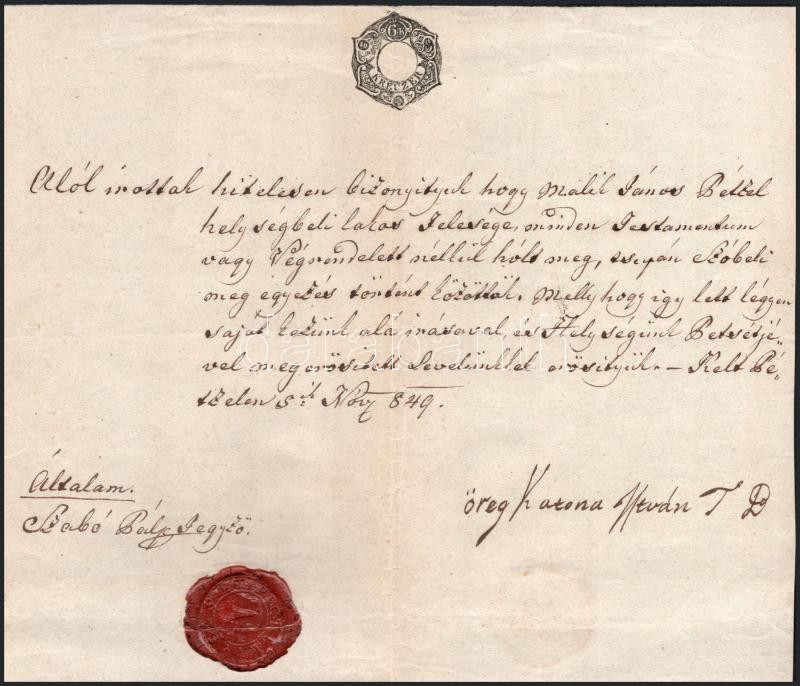 6 K
KREUZER
Alól írottak hitelesen bizonyityuk hogy Malik János Pétzel
helységbeli lakos Felesége, minden Testamentum
vagy Végrendelett nélkül hólt meg, tsupán Szóbeli
meg egyezés történt közöttük. Melly hogy igy lett légyen
saját kezünk alá irásával, és Helységünk Petsétjé„
vel megerösitett Levelünkkel erösityük. – Kelt Pé„
tzelen 5ik Nov 849.
Általam.
Szabó Pál Jegyző.
öreg Katona István T B